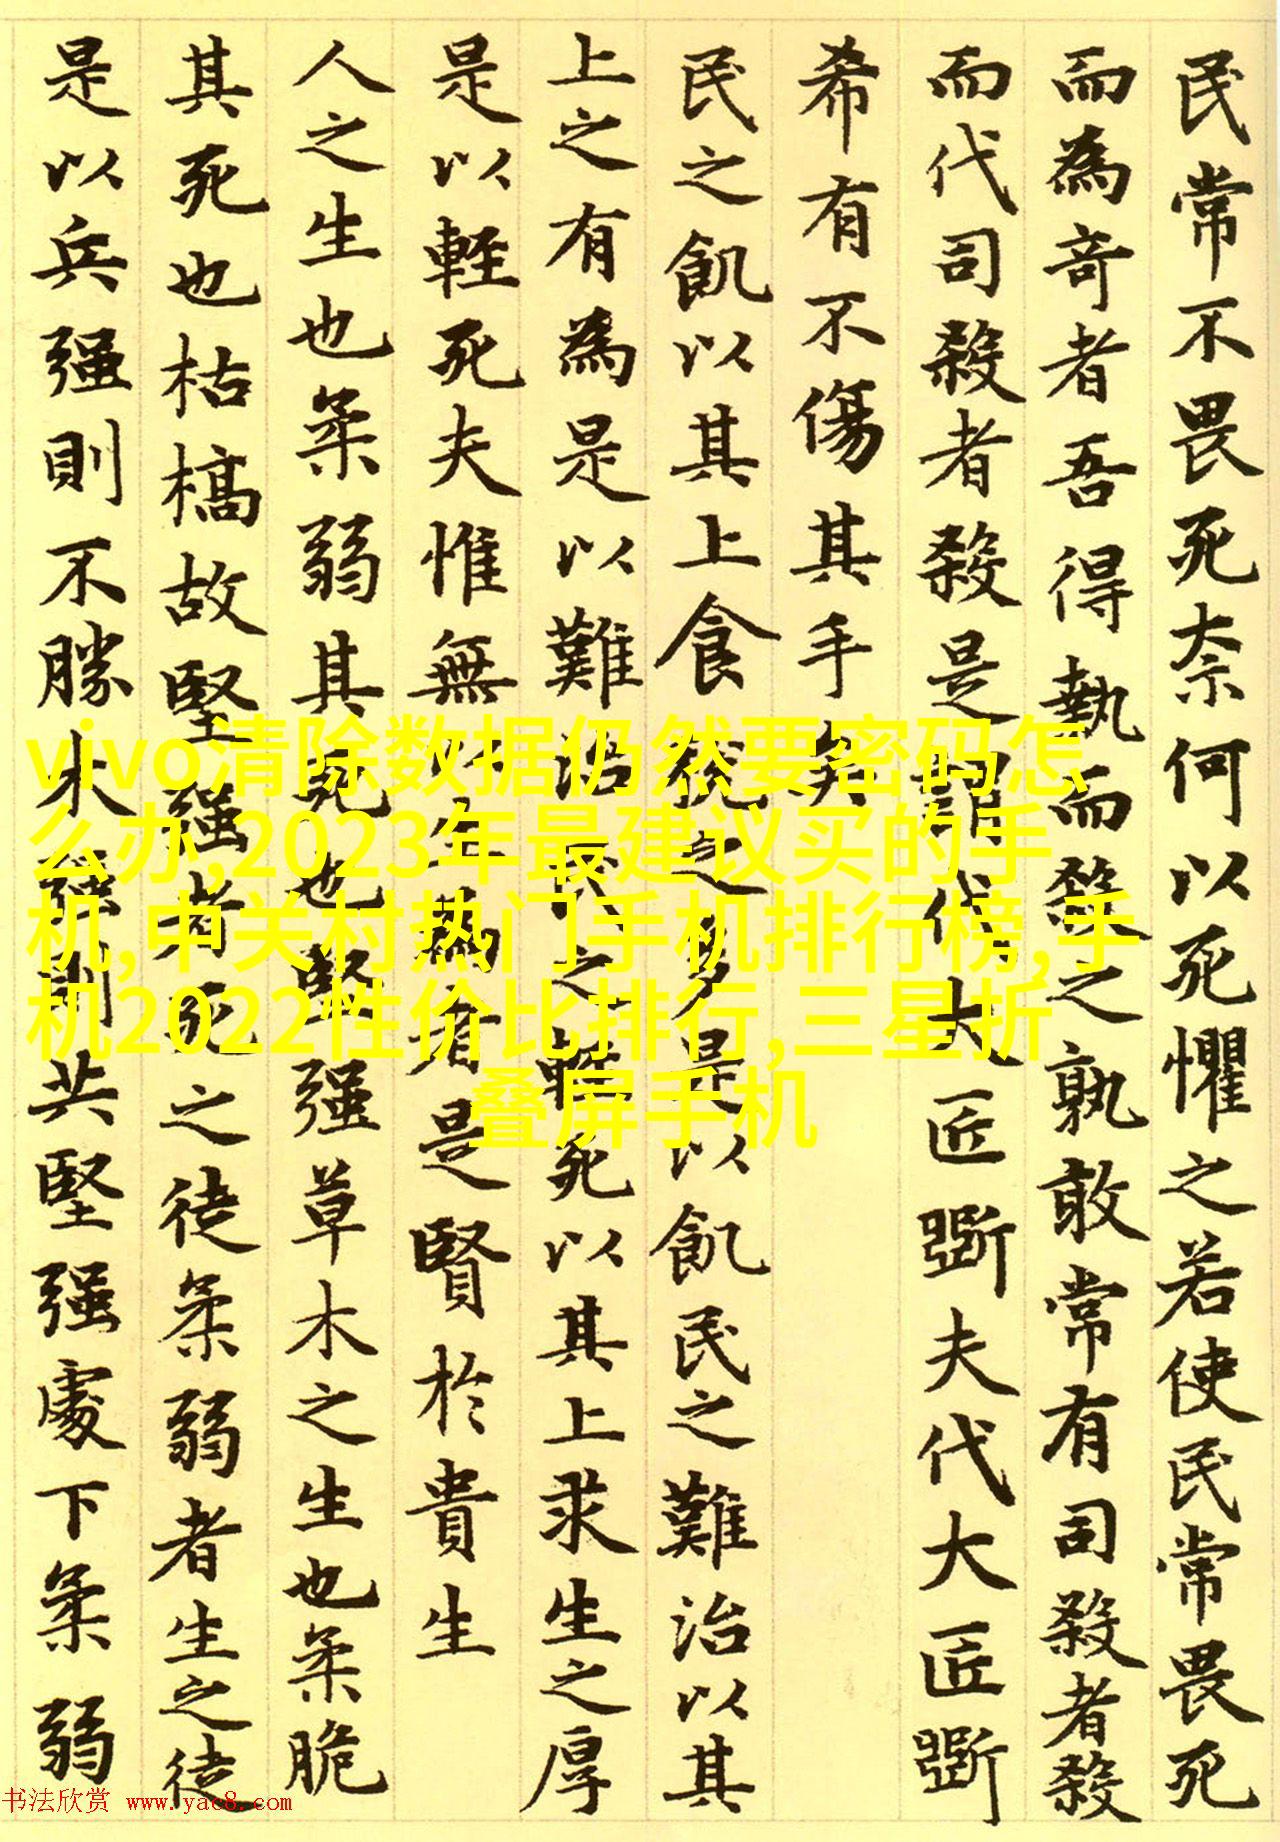 民常不畏死奈何以死懼之若使民常畏死
而為奇者吾得執而殺之孰敢常有司殺者殺
而代司殺者殺是謂代大匠斲夫代大匠斲
希有不傷其手矣
民之飢以其上食稅之多是以飢民之難治以其
上之有為是以難治民之輕死以其上求生之厚
是以輕死夫惟無以生為者是賢於貴生
人之生也柔弱其死也堅强草木之生也柔脆
其死也枯槁故堅强者死之徒柔弱者生之徒
是以兵强則不勝木强則共堅强處下柔弱
vivo清除数据仍然要密码怎
么办,2023年最建议买的手
机,中关村热门手机排行榜,手
机2022性价比排行,三星折
叠屏手机
书法欣赏 www.yac8.com